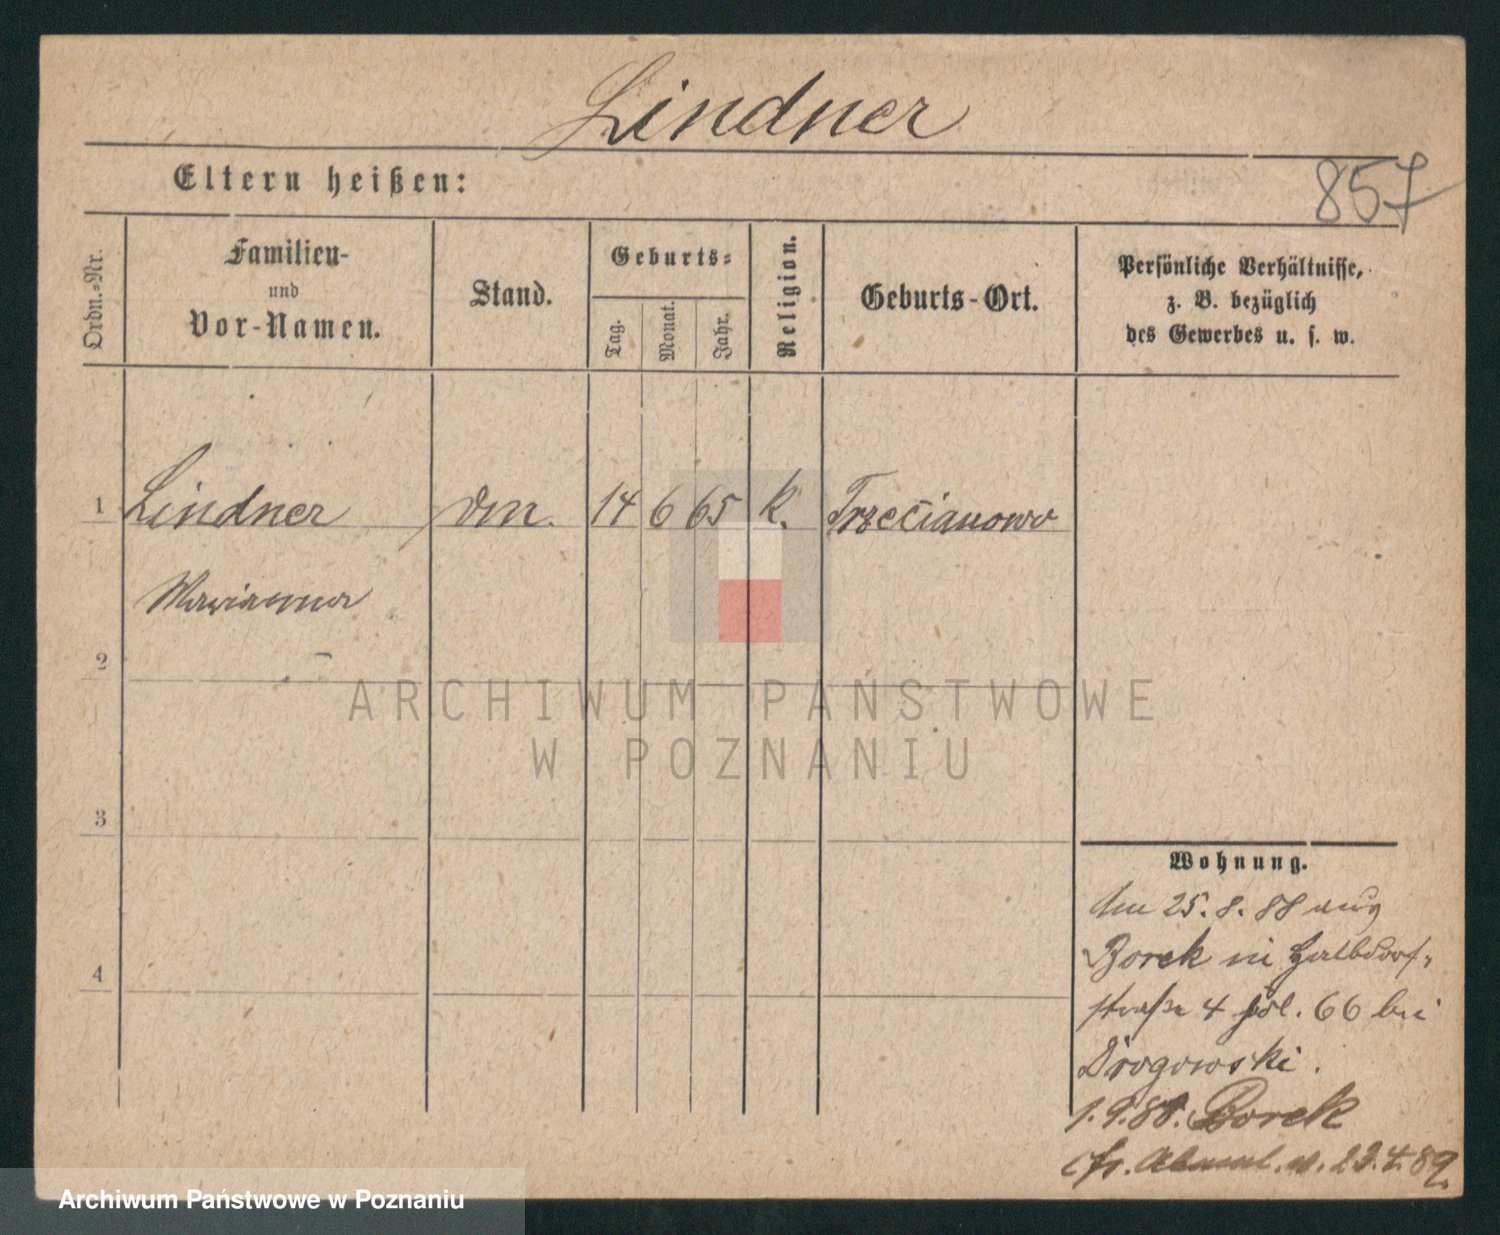 Lindner
Eltern heißen:
857
Ordn.=Nr.
Familien-
und
Vor-Namen.
Stand.
Geburts=
Tag.
Monat.
Jahr.
Religion.
Geburts-Ort.
Persönliche Verhältnisse,
z. B. bezüglich
des Gewerbes u. s. w.
1 Lindner 14 6 65 k. Trzecianowo
Marianna
2
3
4
Wohnung.
Am 25. 8. 88 aus
Borek in Halbdorf-
straße 4 66 bei
Drogowski.
1. 9. 88. Borek
cfr. 89.
ARCHIWUM PAŃSTWOWE
W POZNANIU
Archiwum Państwowe w Poznaniu